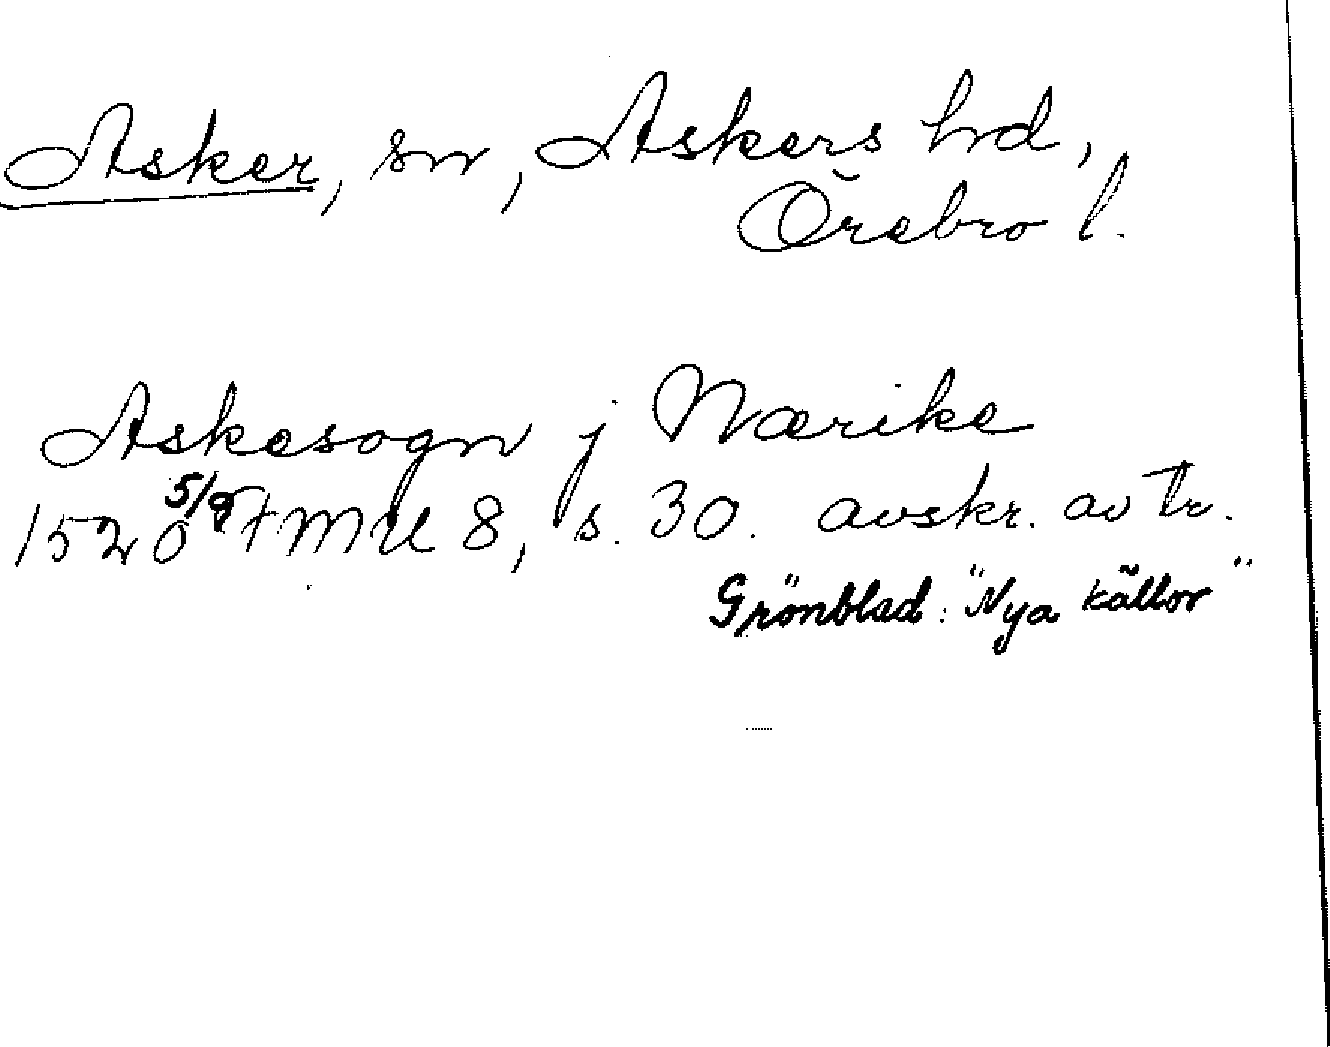 Asker, sn, Askers hd,
Örebro l.
Askesogn j Nærike
1520 5/9 FMU 8, s. 30. avskr. av tr.
Grönblad: "Nya källor"